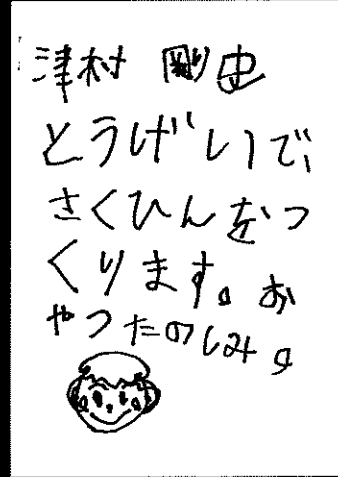 津村 剛史
とうげいで、
さくひんをつ
くります。お
やつたのしみ。